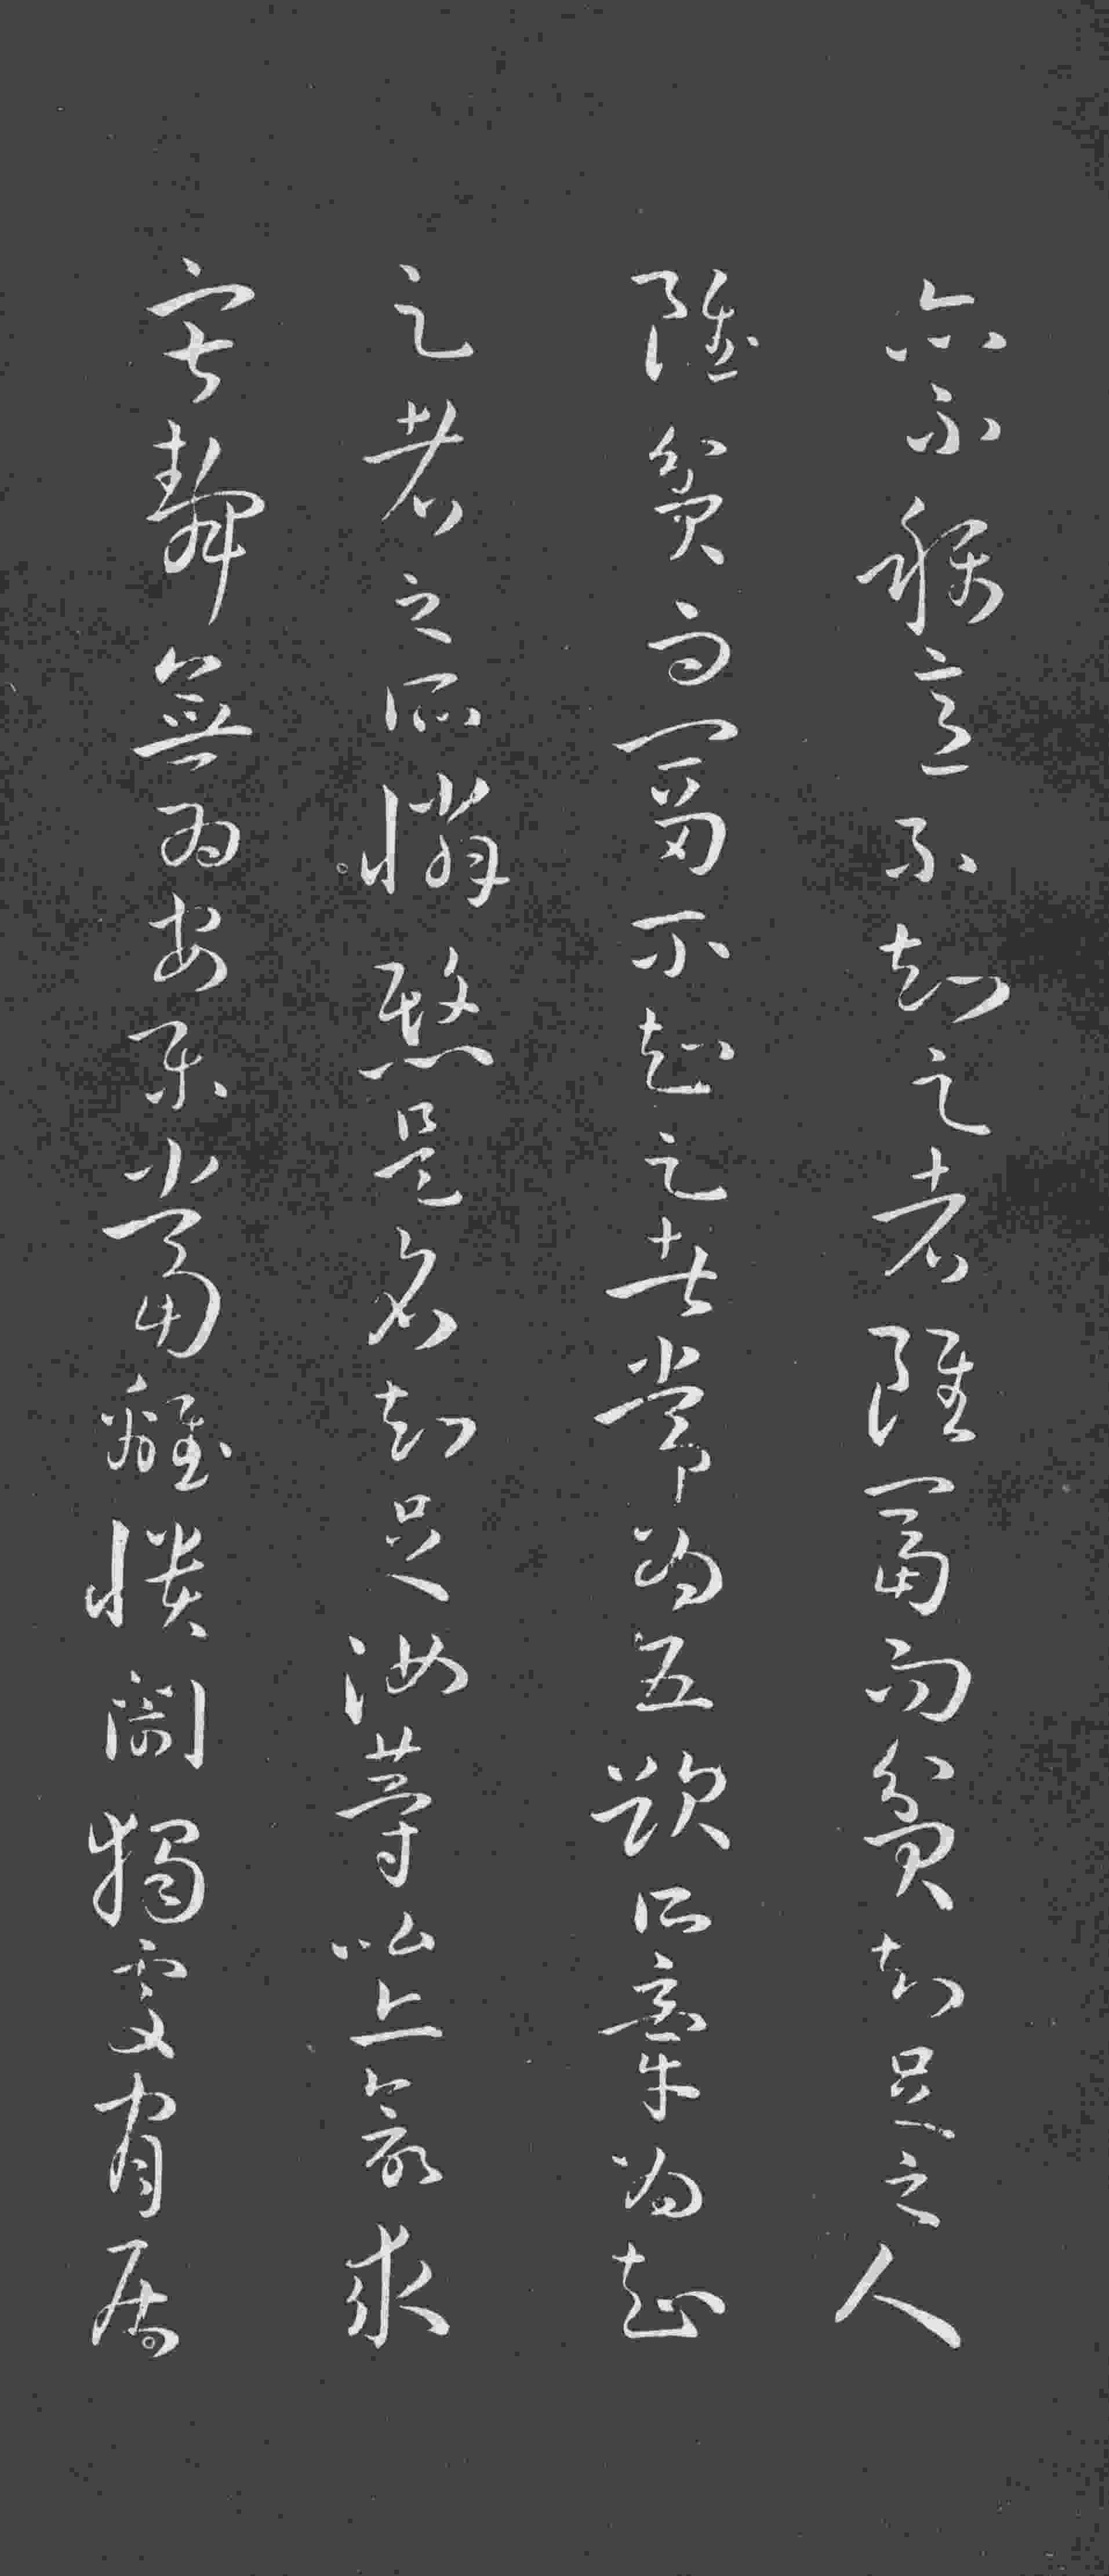 亦不稱意不知足者雖富而貧知足之人
雖貧而富不知足者常為五欲所牽為知
足者之所憐愍是名知足汝等比丘欲求
寂靜無為安樂當離憒閙獨處閒居